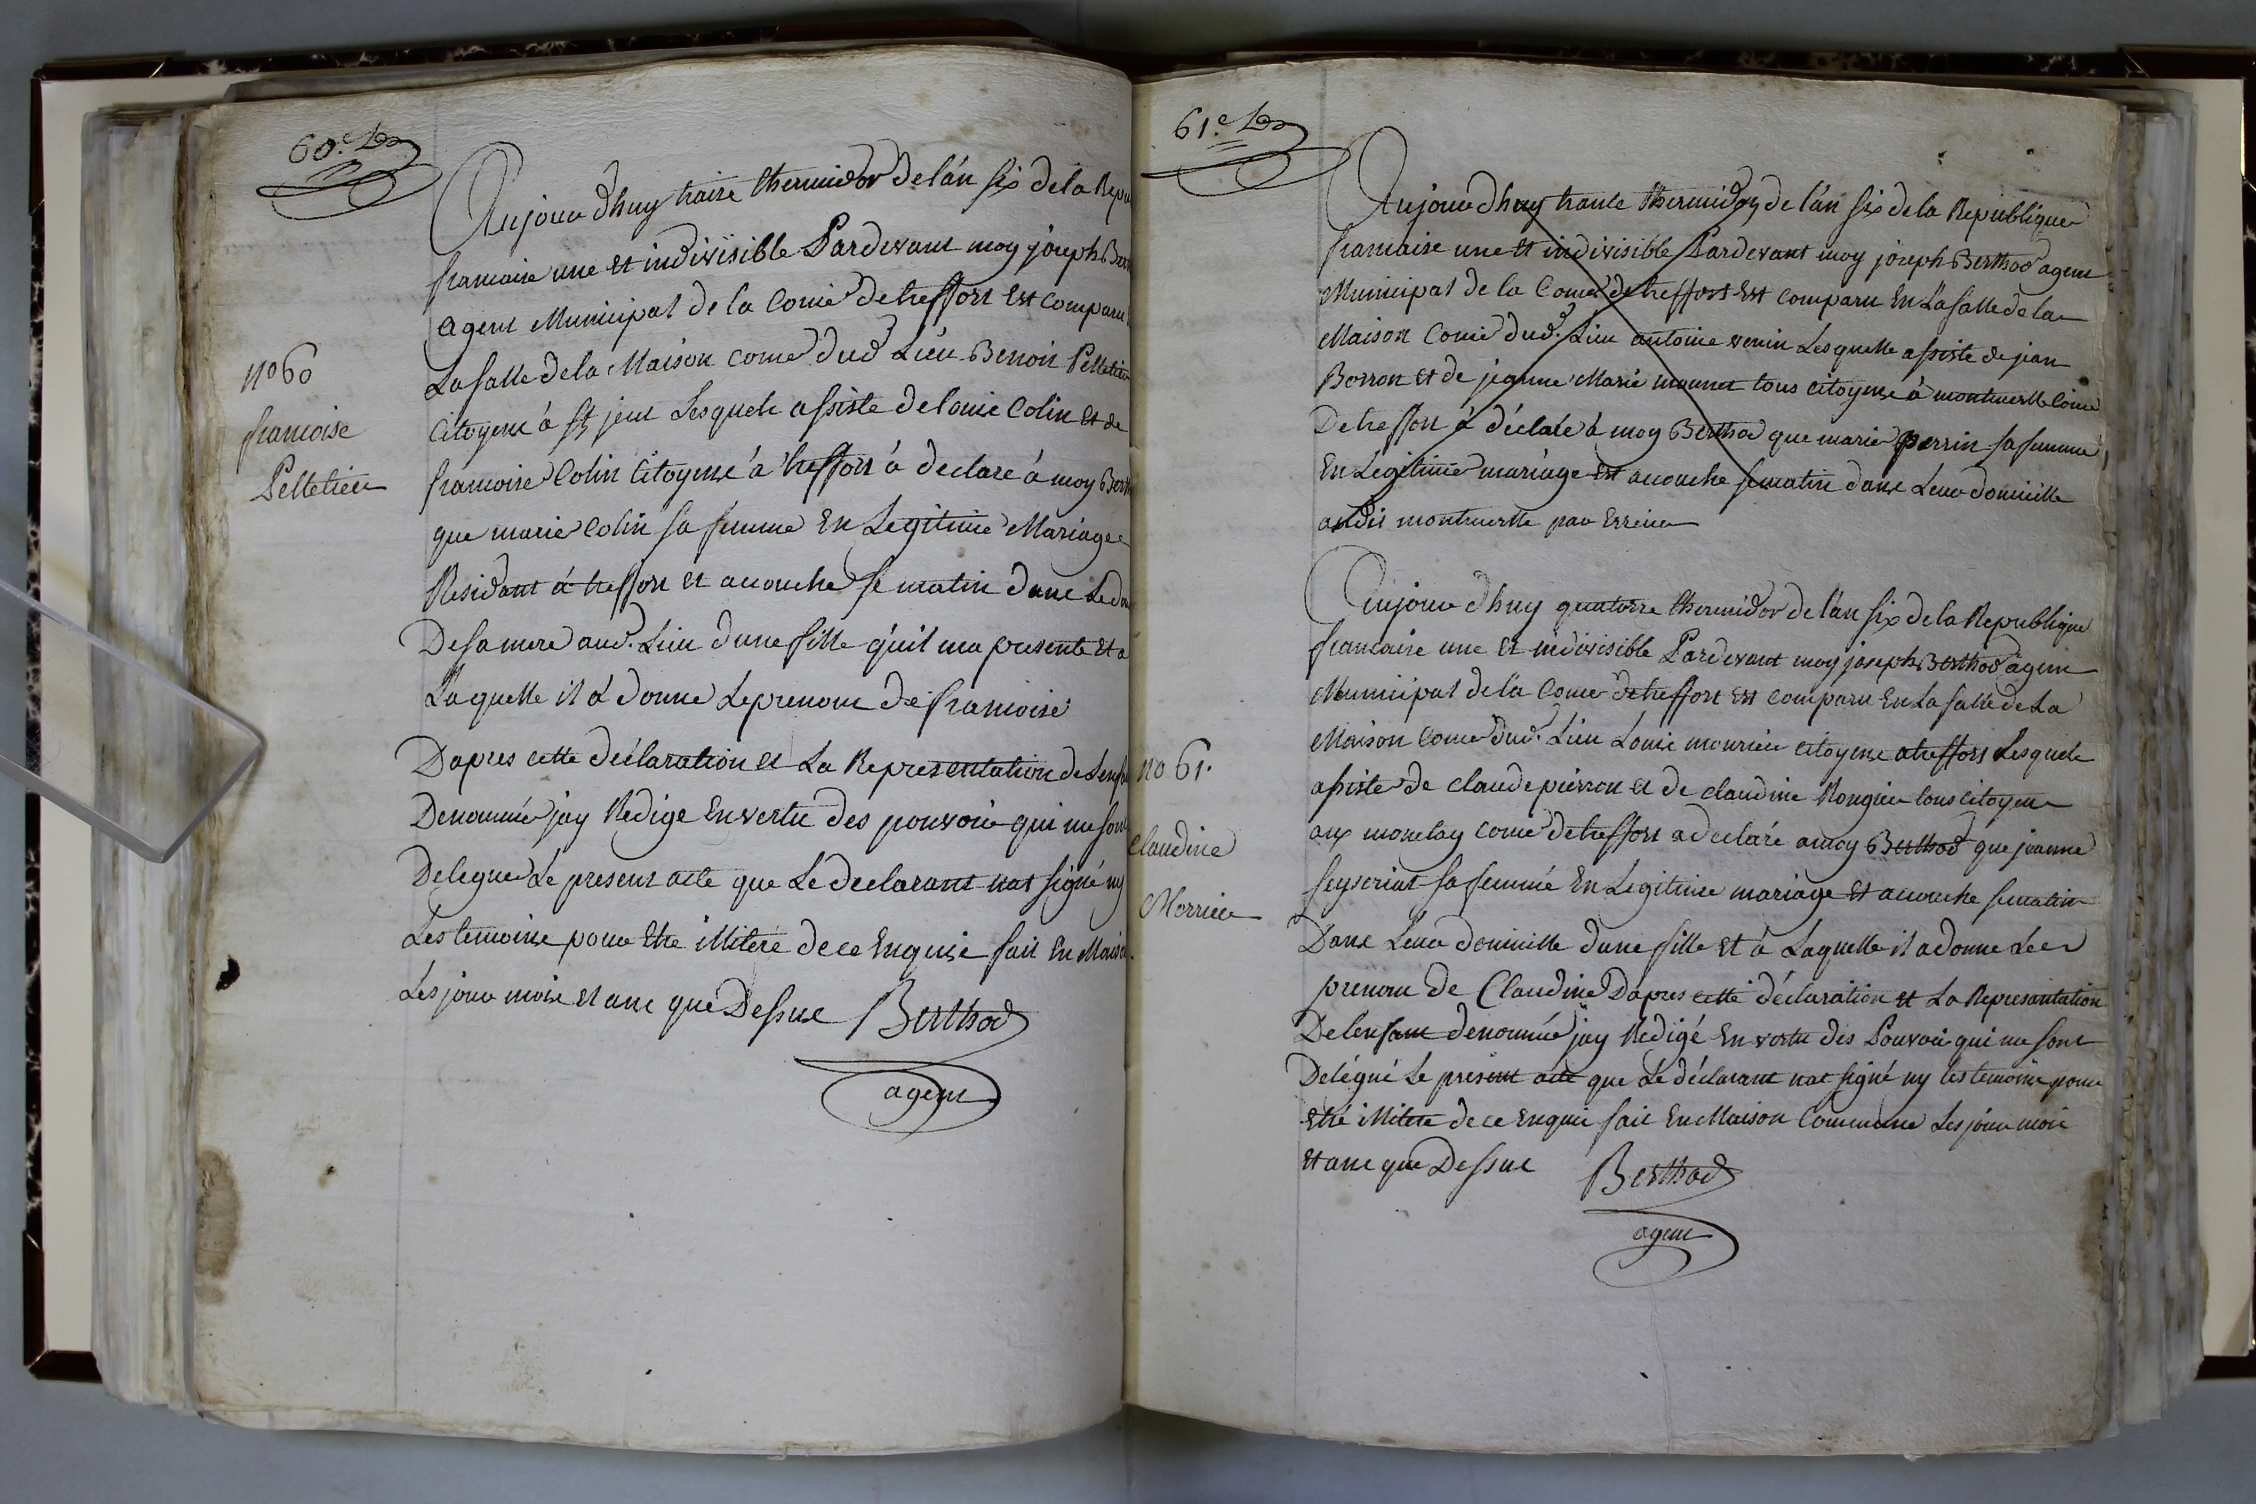 60.e
Aujour dhuy traise thermidor de lán six de la Repu
francaise une et indivisible Pardevant moy joseph Bert
agent Municipal de la Come de treffort Est comparu
La salle de la Maison come dud Lieu Benoit Pelletier
no 60
Citoyens á St jeut Lesquele assiste de louis Colin et de
francoise
francoise Colin Citoyens á treffort á declare á moy Bert
Pelletier
que marie Colin sa femme En Legitime Mariage
Residant á treffort et acouche se matin dans Le do
De sa mere aud. Lieu dune fille quil ma presente et a
Laquelle il á donne Le prenom de francoise
Dapres cette déclaration et La Representation de Lenfa
Denommée jay Redige En vertu des pouvoir qui me sont
Delegue Le present acte que Le declarant nat signé ny
Les temoins pour Etre illitere de ce Enquis fait En Maison
Les jour mois et ans que Dessus Berthod
agent
61.e
Aujour dhuy trante thermidor de lán six de la Republique
francaise une et indivisible Pardevant moy joseph Berthod agent
Municipal de la Come de treffort Est comparu En La salle de la
Maison Come dud. Lieu antoine venin Lesquelle assiste de jean
Borron et de jeanne Marie monnet tous citoyens á montmerle Come
De treffort á déclaré á moy Berthod que marie perrin sa femme
En Légitime mariage est acouche se matin dans Leur domicille
audit montmerle par Erreur
Aujour dhuy quatorze thermidor de lán six de la Republique
francaise une et indivisible Pardevant moy joseph Berthod agent
Municipal de la Come de treffort Est comparu En La salle de La
Maison Come dud. Lieu Louis mourier citoyens a treffort Lesquele
no 61.
assiste de claude pierron et de claudine Rougier tous citoyens
aux monetay come de treffort a declaré a moy Berthod que jeanne
Claudine
seyseriat sa femme En Legitime mariage et acouche se matin
Morrier
Dans Leur domicille dune fille et á Laquelle il a donne Le
prenom de Claudine Dapres cette déclaration et La Representation
De lenfant denommée jay Redigé En vertu des Pouvoir qui me sont
Delégué Le présent acte que Le déclarant nat signé ny les temoins pour
Etre illitere de ce Enquis fait En Maison Commune Les jour mois
et ans que Dessus Berthod
agent